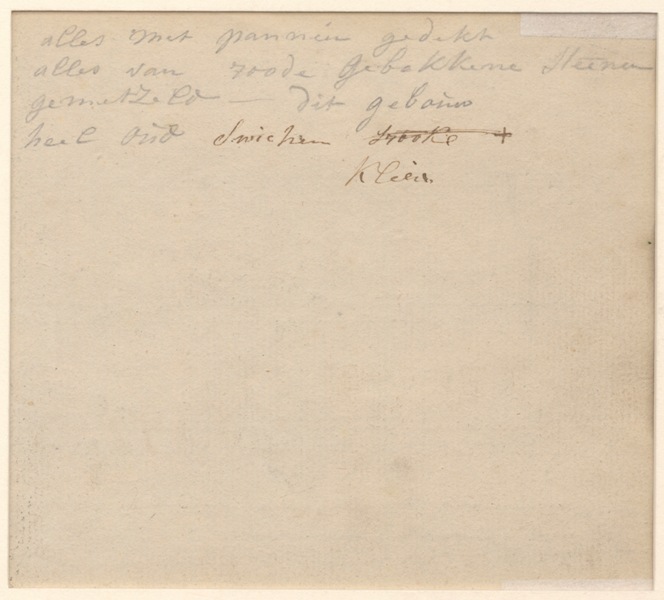 alles met pannen gedekt
alles van roode gebakkene steenen
gemetzeld — dit gebouw
heel oud Swichem +
Klein